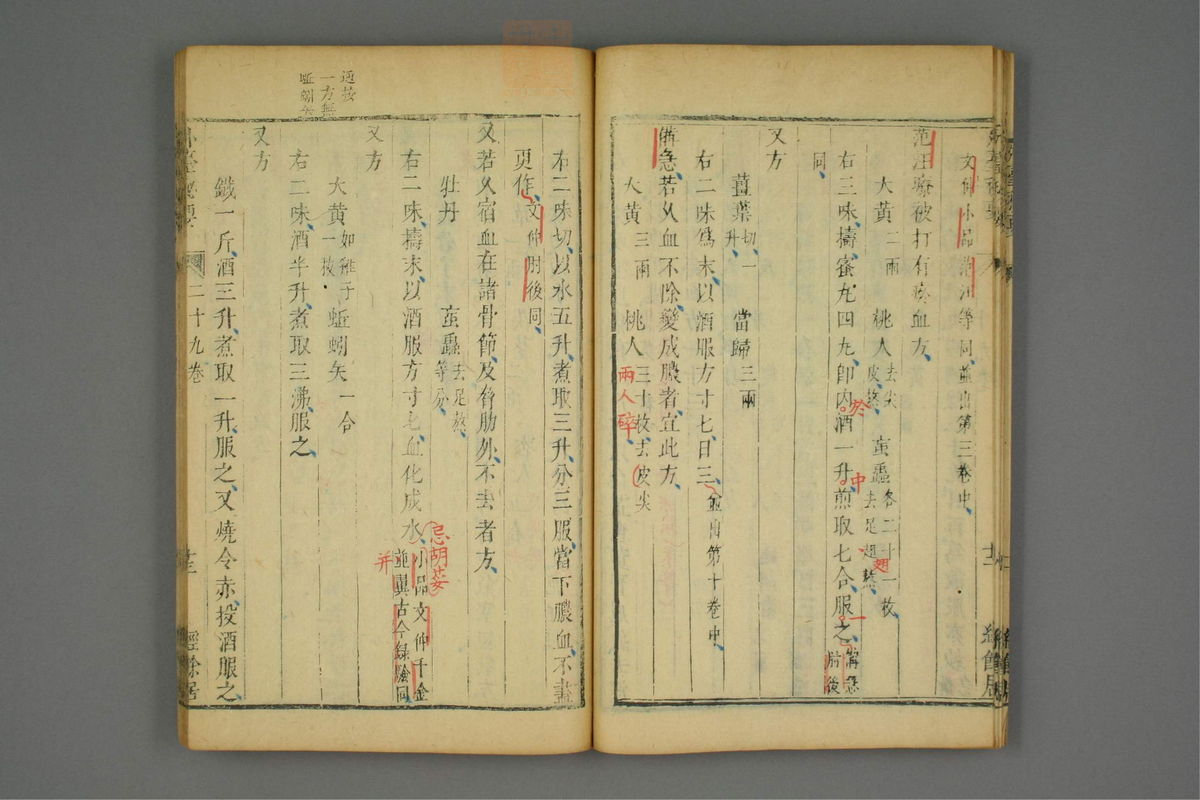 文仲小品范汪等同並出第三卷中
范汪療被打有瘀血方
大黃二兩 桃人去尖皮熬 䖟蟲各二十一枚去足翅熬
翅
右三味擣蜜丸四丸卽內酒一升煎取七合服之備急肘後
於
中
一
同
又方
薑葉切一升 當歸三兩
右二味爲末以酒服方寸匕日三並出第十卷中
備急若久血不除變成膿者宜此方
大黃三兩 桃人三十枚去皮尖
兩人碎
右二味切以水五升煮取三升分三服當下膿血不盡
更作文仲肘後同
又若久宿血在諸骨節及脅肋外不去者方
牡丹 䖟蟲去足熬等分
右二味擣末以酒服方寸匕血化成水小品文仲千金並翼古今錄驗同
忌胡荽
并
又方
大黃如雞子一枚 蚯蚓矢一合
一方無
右二味酒半升煮取三沸服之
又方
鐵一斤酒三升煮取一升服之又燒令赤投酒服之
二十九卷
經餘居